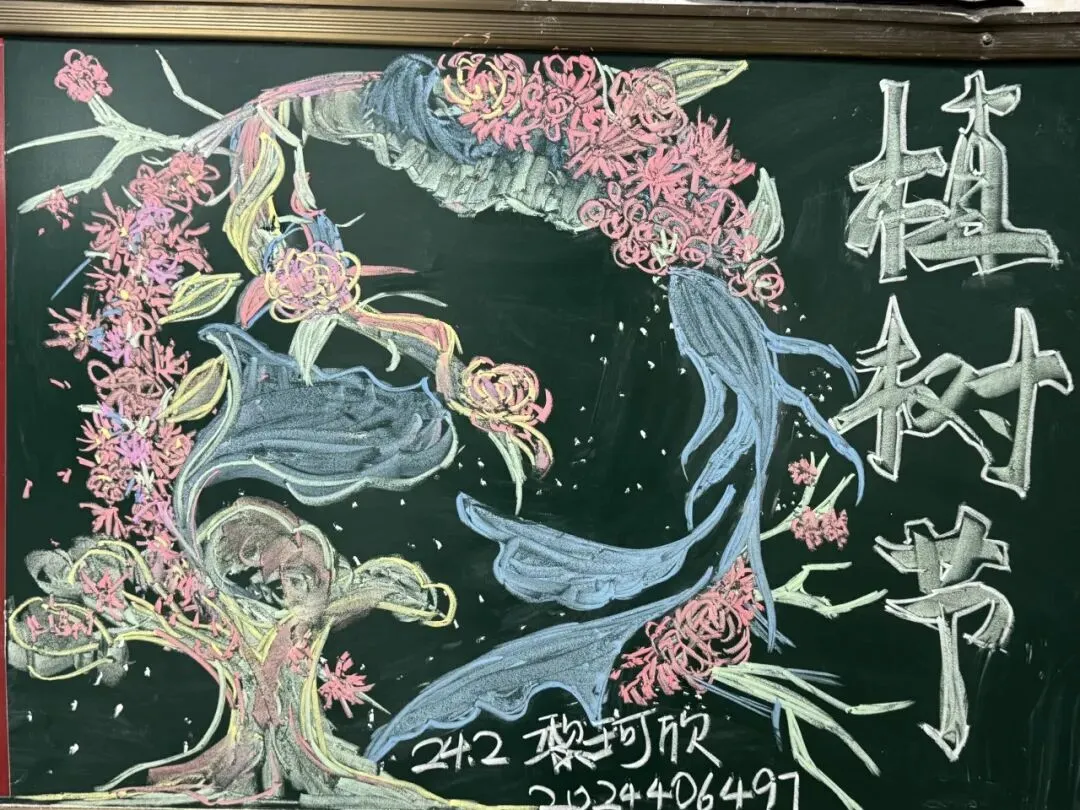 植树节
24.2 黎珂欣
2024406497